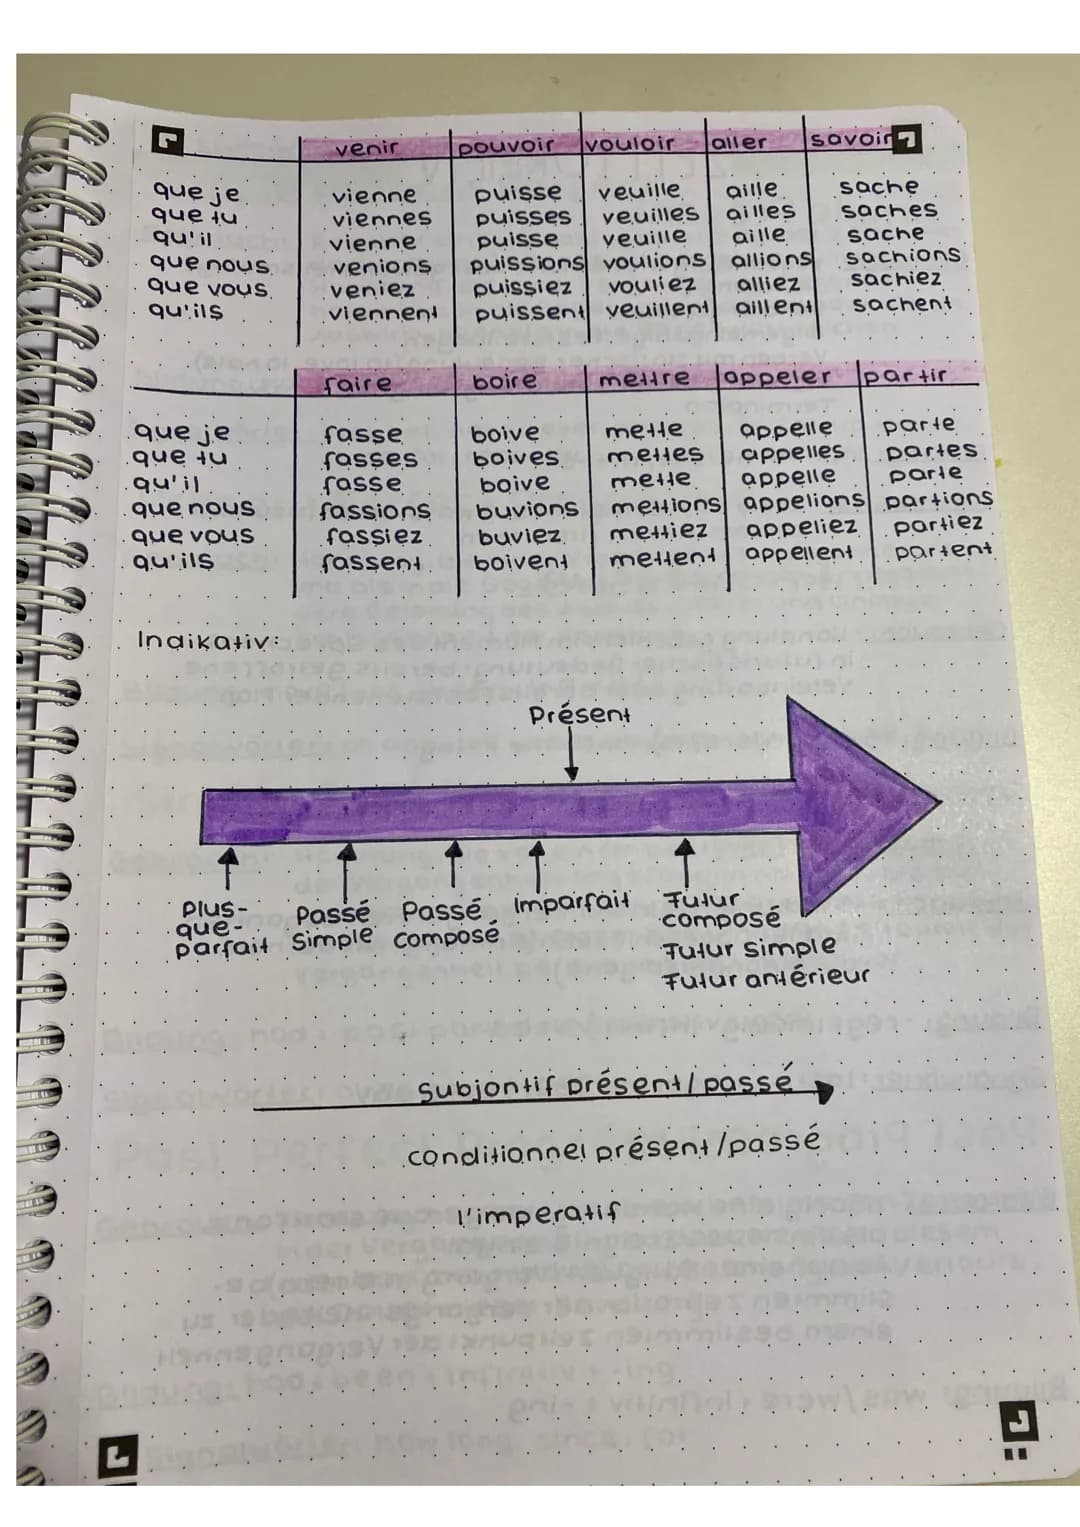 venir pouvoir vouloir aller savoir
que je vienne puisse veuille aille sache
que tu viennes puisses veuilles ailles saches
qu'il vienne puisse veuille aille sache
que nous venions puissions voulions allions sachions
que vous veniez puissiez vouliez alliez sachiez
qu'ils viennent puissent veuillent aillent sachent
faire boire mettre appeler partir
que je fasse boive mette appelle parte
que tu fasses boives mettes appelles partes
qu'il fasse boive mette appelle parte
que nous fassions buvions mettions appelions partions
que vous fassiez buviez mettiez appeliez partiez
qu'ils fassent boivent mettent appellent partent
Indikativ:
Présent
Plus-
que-
parfait
Passé
Simple
Passé
composé
Imparfait
Futur
composé
Futur simple
Futur antérieur
Subjontif présent/passé
conditionnel présent/passé
l'imperatif